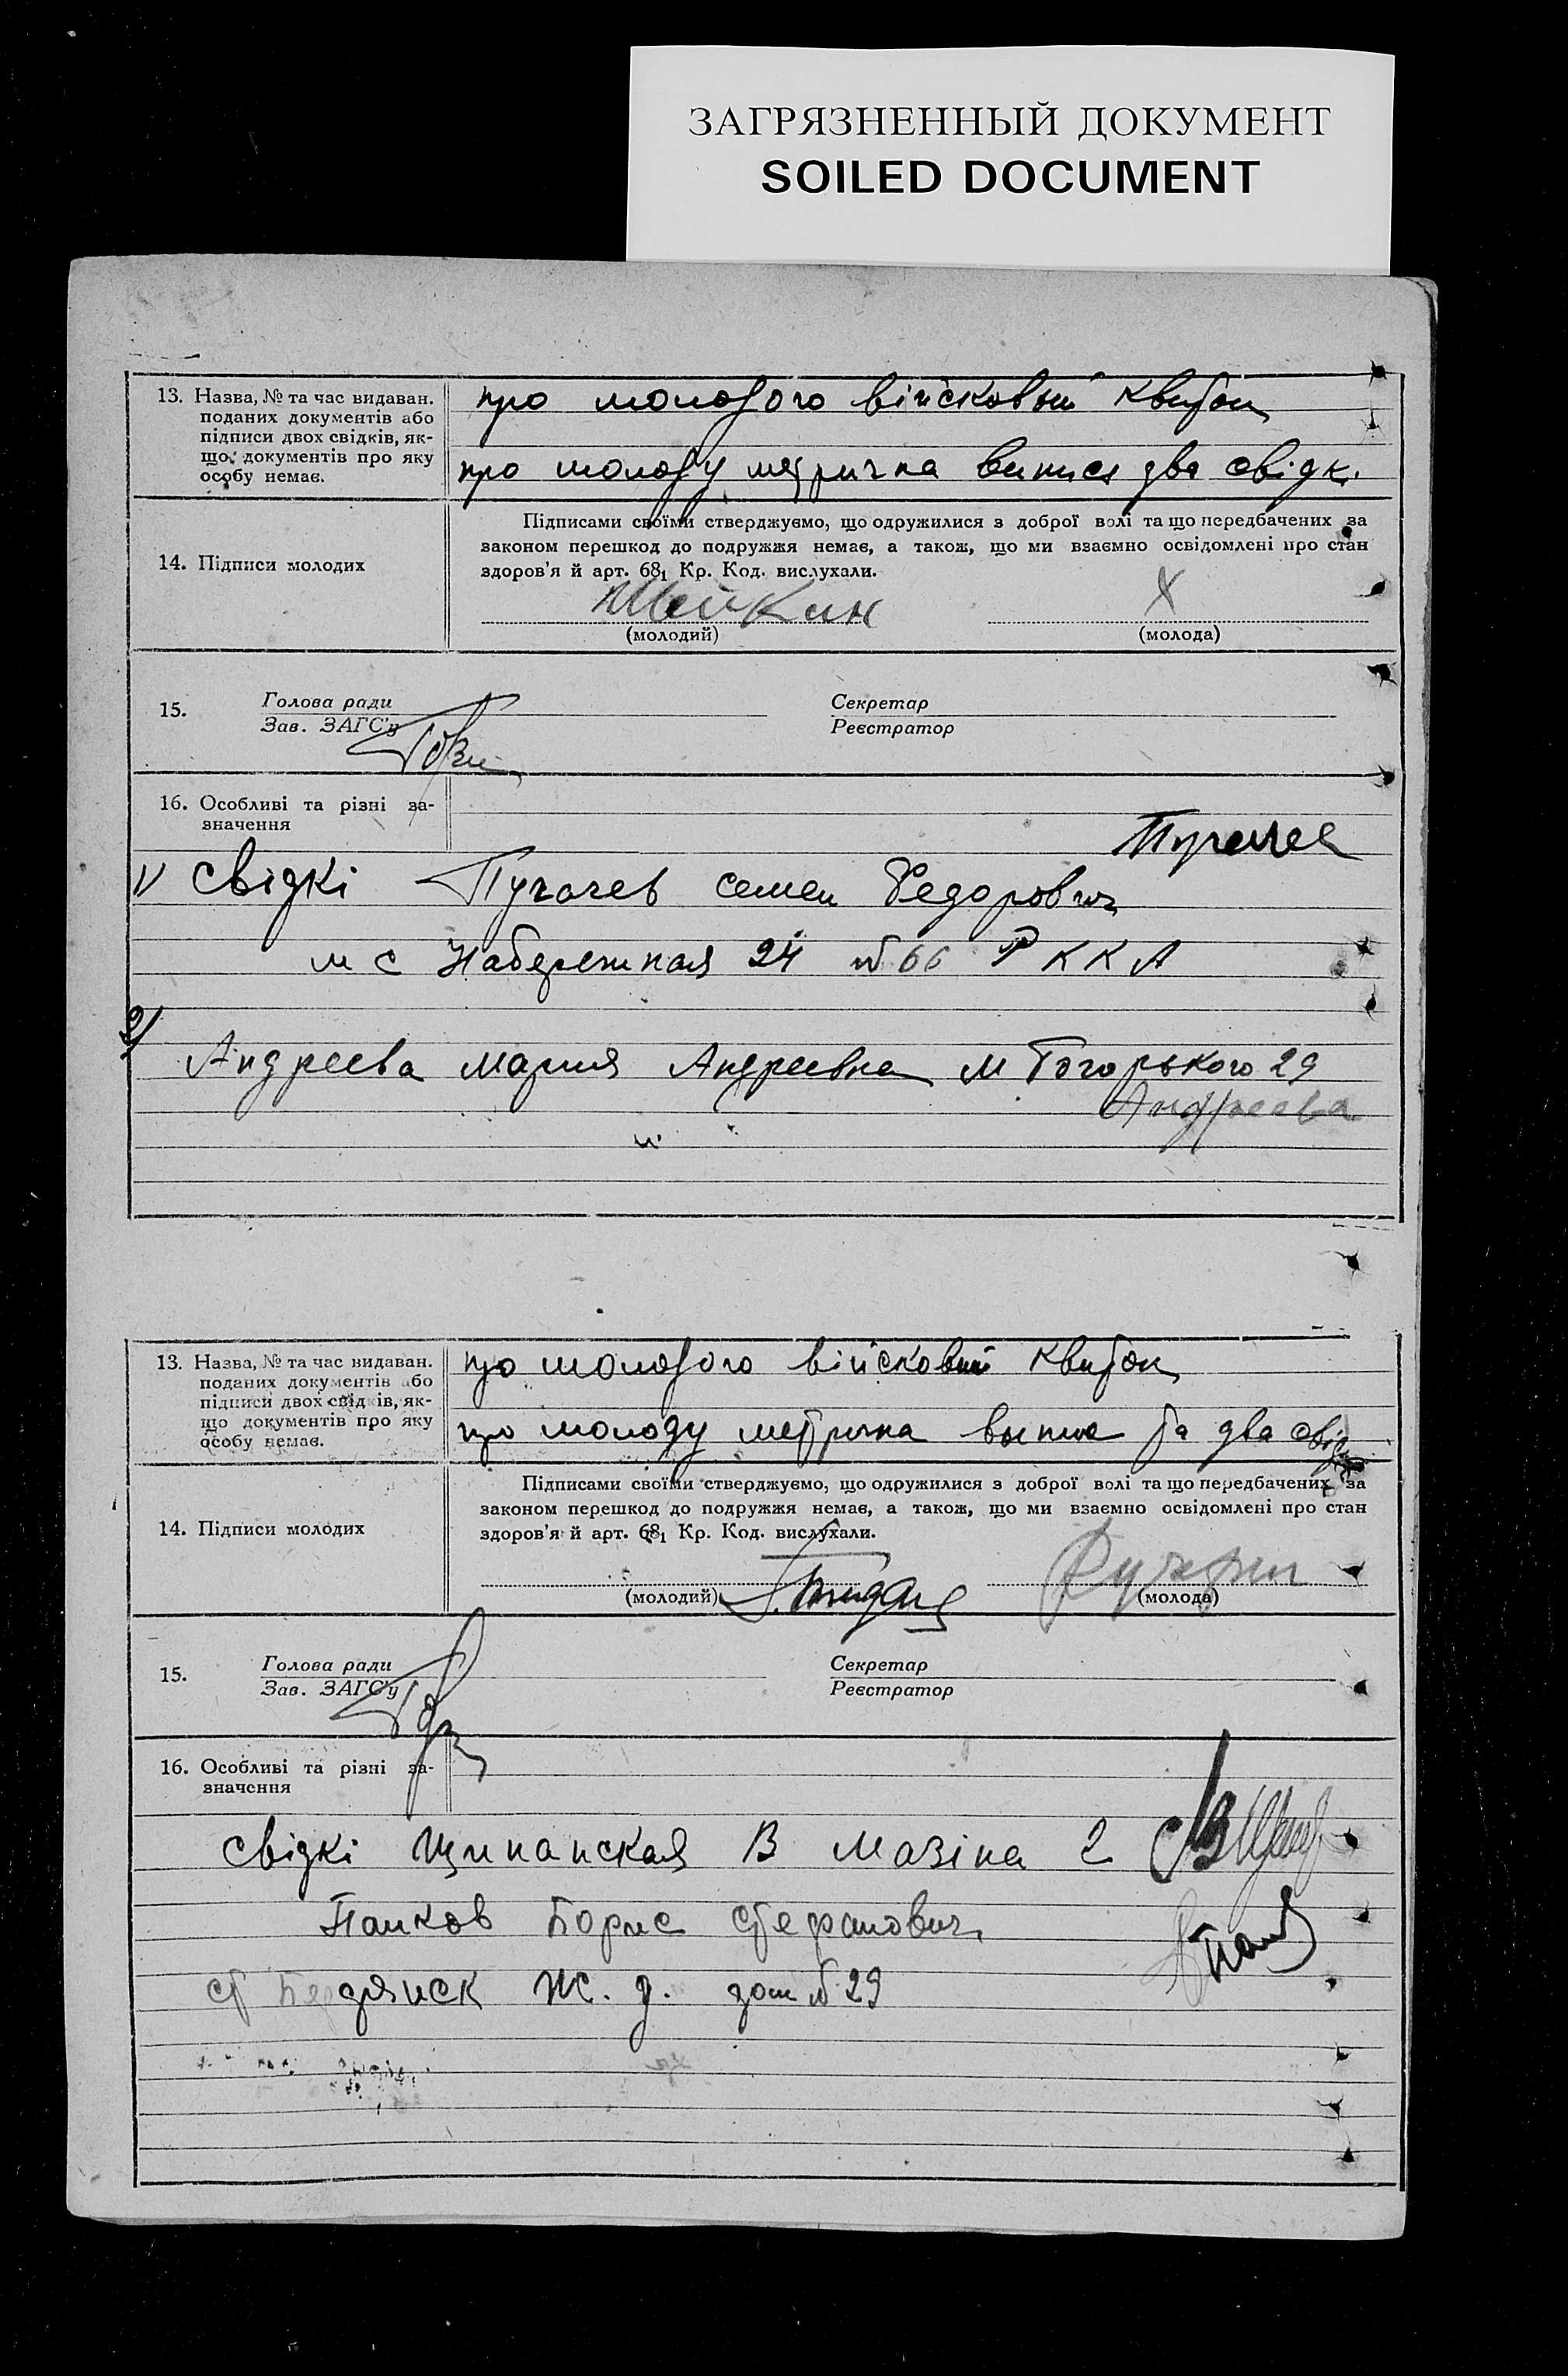 ЗАГРЯЗНЕННЫЙ ДОКУМЕНТ
SOILED DOCUMENT
13. Назва, № та час видаван. поданих документів або підписи двох свідків, якщо, документів про яку особу немає.
про молодого військовый квиток
про молоду метрична выпися два свідк.
14. Підписи молодих
Підписами своїми стверджуємо, що одружилися з доброї волі та що передбачених за
законом перешкод до подружжя немає, а також, що ми взаємно освідомлені про стан
здоров'я й арт. 68₁ Кр. Код. вислухали.
Шейкин X
(молодий) (молода)
15. Голова ради Секретар
Зав. ЗАГС'у Реєстратор
16. Особливі та різні за-
значення
1) Свідкі Пугачев Семен Федорович
м с Набережная 24 № 66 РККА
2)
Андреева Мария Андреевна М Гогорького 29
Андреева
13. Назва, № та час видаван. поданих документів або підписи двох свідків, якщо документів про яку особу немає.
про молодого військовий квиток
про молоду метрична выпис та два свідк
14. Підписи молодих
Підписами своїми стверджуємо, що одружилися з доброї волі та що передбачених за
законом перешкод до подружжя немає, а також, що ми взаємно освідомлені про стан
здоров'я й арт. 68₁ Кр. Код. вислухали.
(молодий) (молода)
15. Голова ради Секретар
Зав. ЗАГС'у Реєстратор
16. Особливі та різні за-
значення
свідкі Щипанская В Мазіна 2
Панков Борис Стефанович
ст Бердянск Ж. д. дом № 29